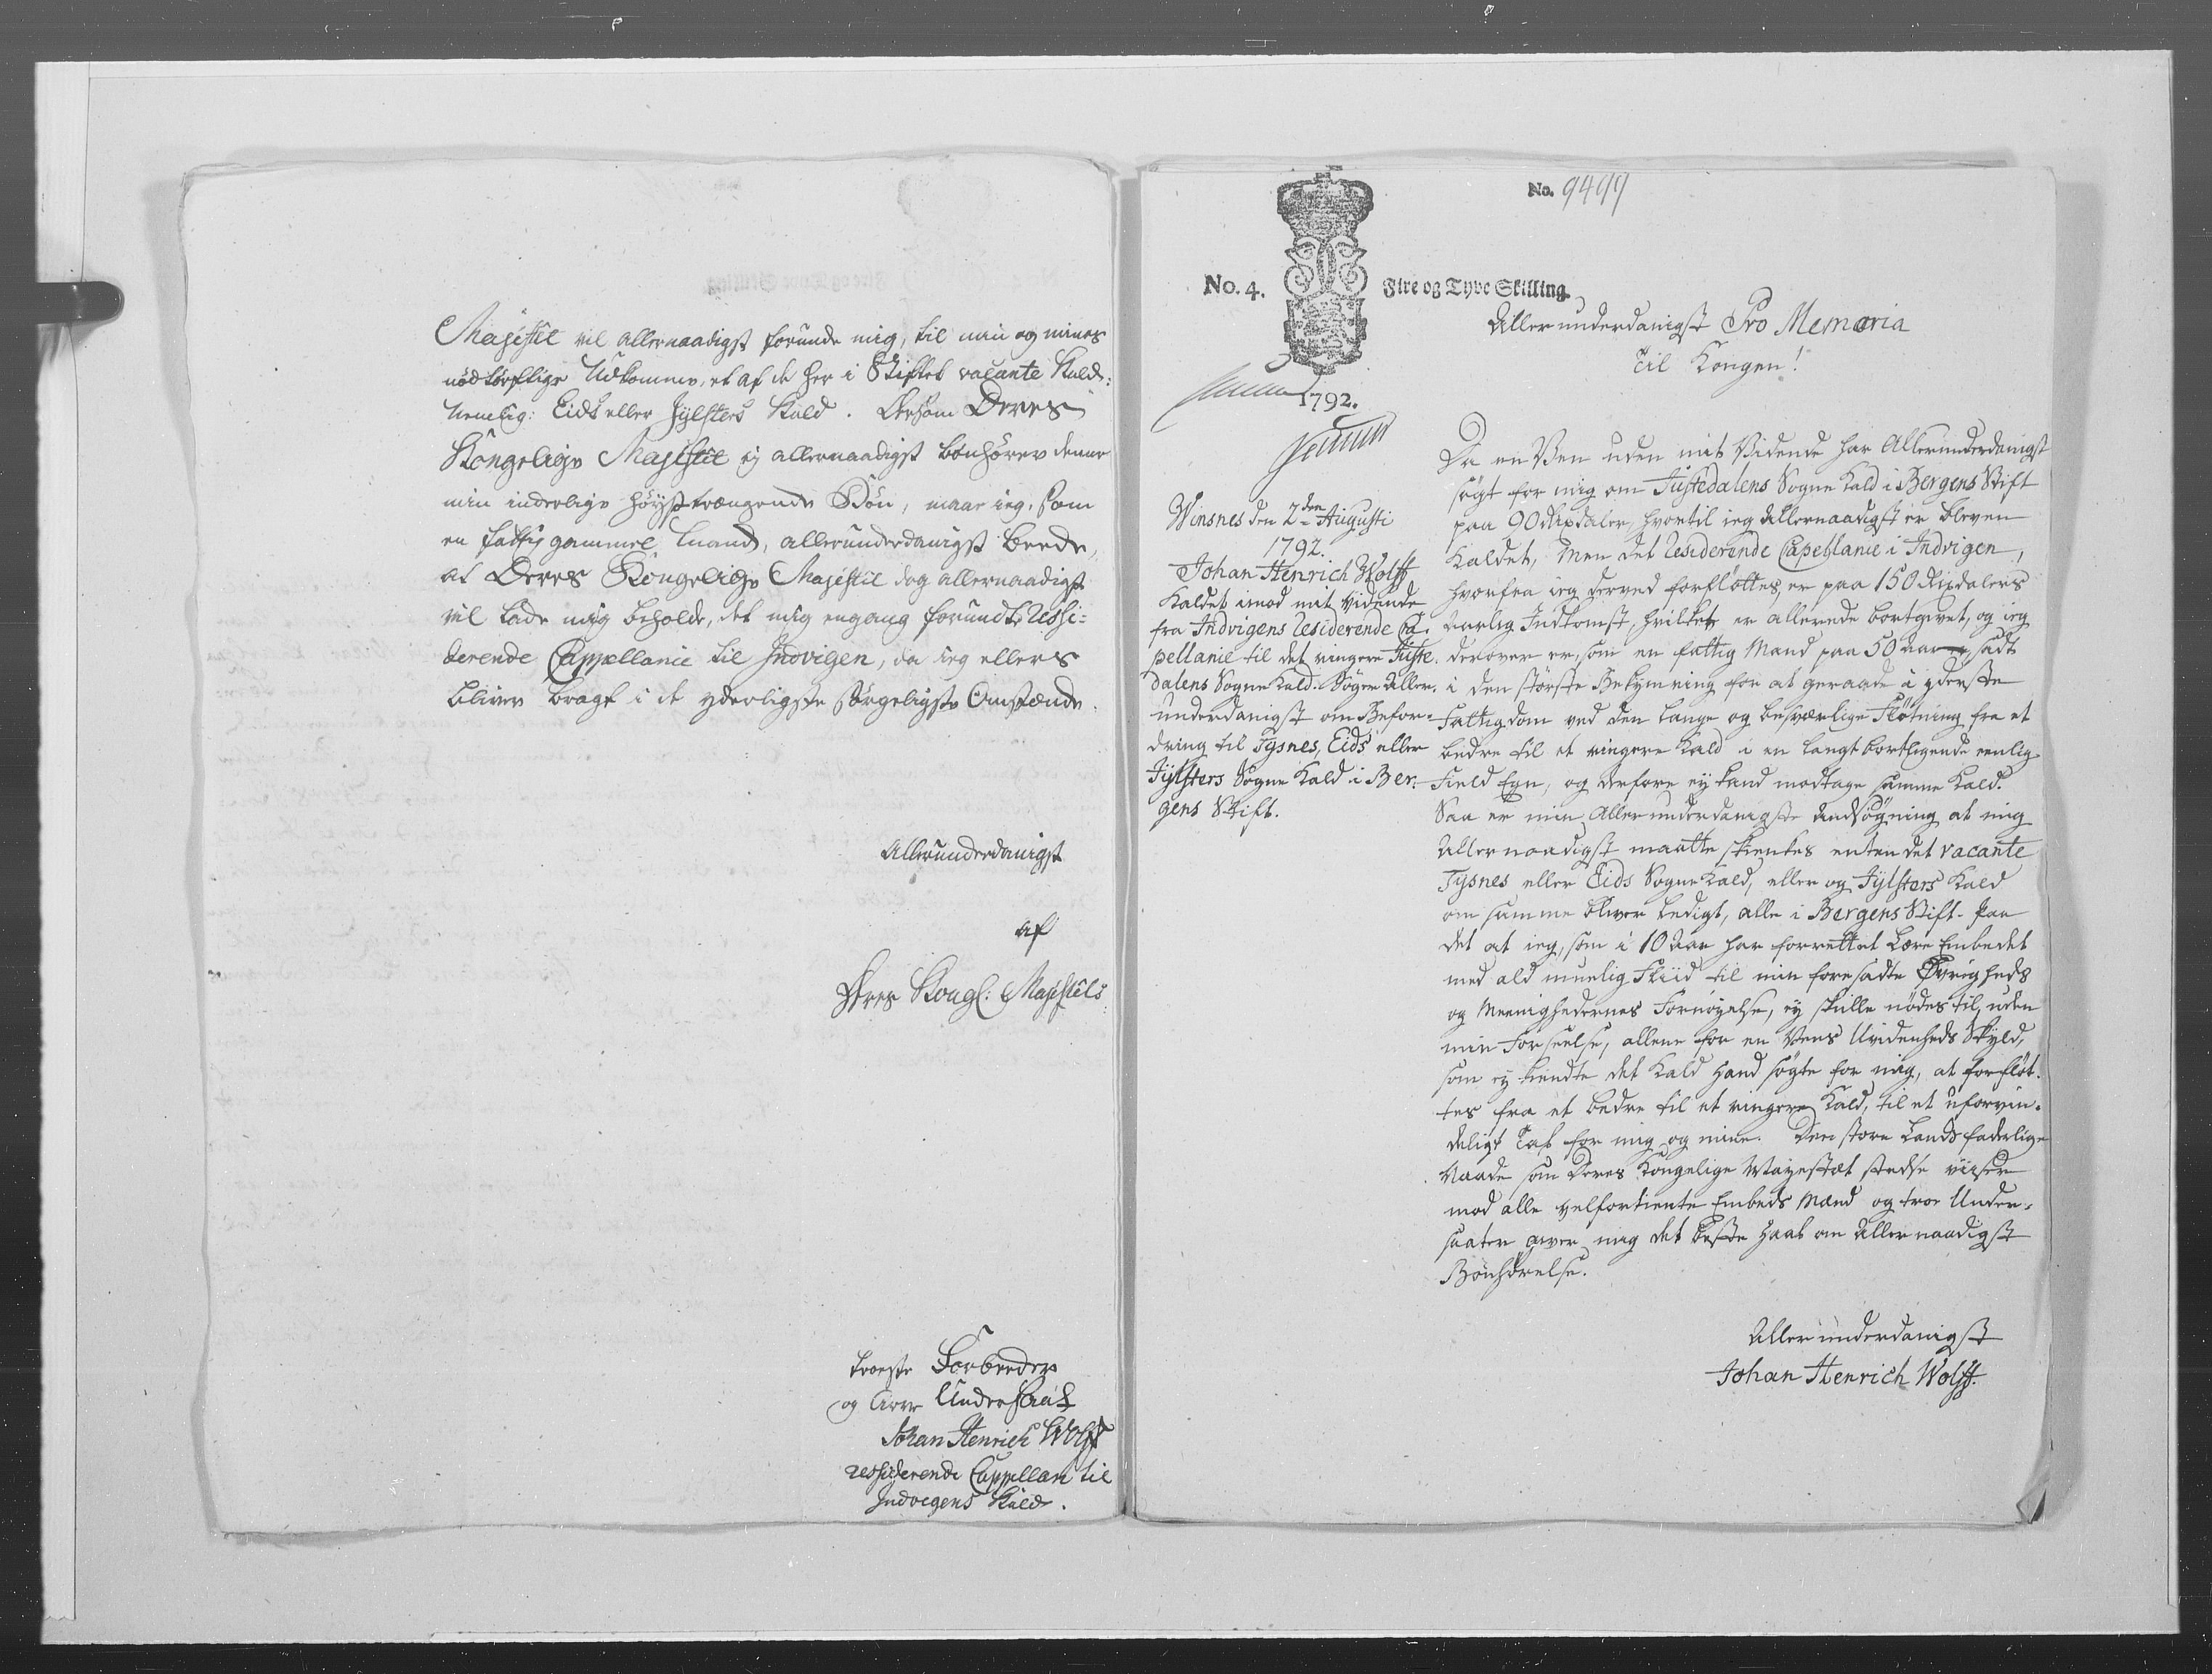 Majestet vil allernaadigst forunde mig, til min og mines
nödtörftige Udkomme, et af de her i Stiftet vacante Kald:
Nemlig: Eids eller Jylsters Kald. Dersom Deres
Kongelige Majestet ej allernaadigst bönhörer denne
min inderlige höystrængende Bön, maae ieg, som
en fattig gammel Mand, allerunderdanigst beede,
at Deres Kongelige Majestet dog allernaadigst
vil lade mig beholde, det mig engang forundte ressi-
derende Cappellanie til Indvigen, da ieg ellers
bliver bragt i de yderligste sörgeligste Omstænde.
Allerunderdanigst
af
Deres Kongl: Majestets
troeste Forbeeder
og Arve Undersaat
Johan Henrich Wolff
ressiderende Cappellan til
Indvigens Kald.
No. 9499
No. 4.
Fire og Tyve Skilling.
1792.
Allerunderdanigst Pro Memoria
Til Kongen!
Winsnes den 2den Augusti
1792.
Johan Henrich Wolff
Kaldet imod mit Vidende
fra Indvigens Residerende Ca-
pellanie til det ringere Juste-
dalens Sogne Kald. Söger Aller-
underdanigst om Befor-
dring til Tysnes, Eids eller
Jylsters Sogne Kald i Ber-
gens Stift.
Da en Ven uden mit Vidende har Allerunderdanigst
sögt for mig om Justedalens Sogne Kald i Bergens Stift
paa 90 Rixdaler, hvortil ieg Allernaadigst er bleven
Kaldet, Men det Residerende Capellanie i Indvigen,
hvorfra ieg derved forflöttes, er paa 150 Rixdalers
Aarlig Indkomst, hvilket er allerede bortgivet, og ieg
derover er, som en fattig Mand paa 50 Aar, sadt
i den störste Bekymring for at geraade i yderste
Fattigdom ved den lange og besværlige Flötning fra et
bedre til et ringere Kald i en langt bortligende eenlig
Field Egn, og derfore ey kand modtage samme Kald.
Saa er min Allerunderdanigste Ansögning at mig
Allernaadigst maatte skienkes enten det vacante
Tysnes eller Eids Sogne Kald, eller og Jylsters Kald
om samme bliver ledigt, alle i Bergens Stift. Paa
det at ieg, som i 10 Aar har forrettet Lære Embedet
med ald muelig Fliid til min foresadte Øvrigheds
og Meenighedernes Fornöyelse, ey skulle nödes til, uden
min Forseelse, allene for en Vens Uvidenheds Skyld,
som ey kiendte det Kald hand sögte for mig, at forflöt-
tes fra et bedre til et ringere Kald, til et uforvin-
deligt Tab for mig og mine. Den store Lands faderlige
Naade som Deres Kongelige Mayestæt stedse viiser
mod alle velfortiente Embeds Mænd og troe Under-
saater giver mig det beste Haab om Allernaadigst
Bönhörelse.
Allerunderdanigst
Johan Henrich Wolff.